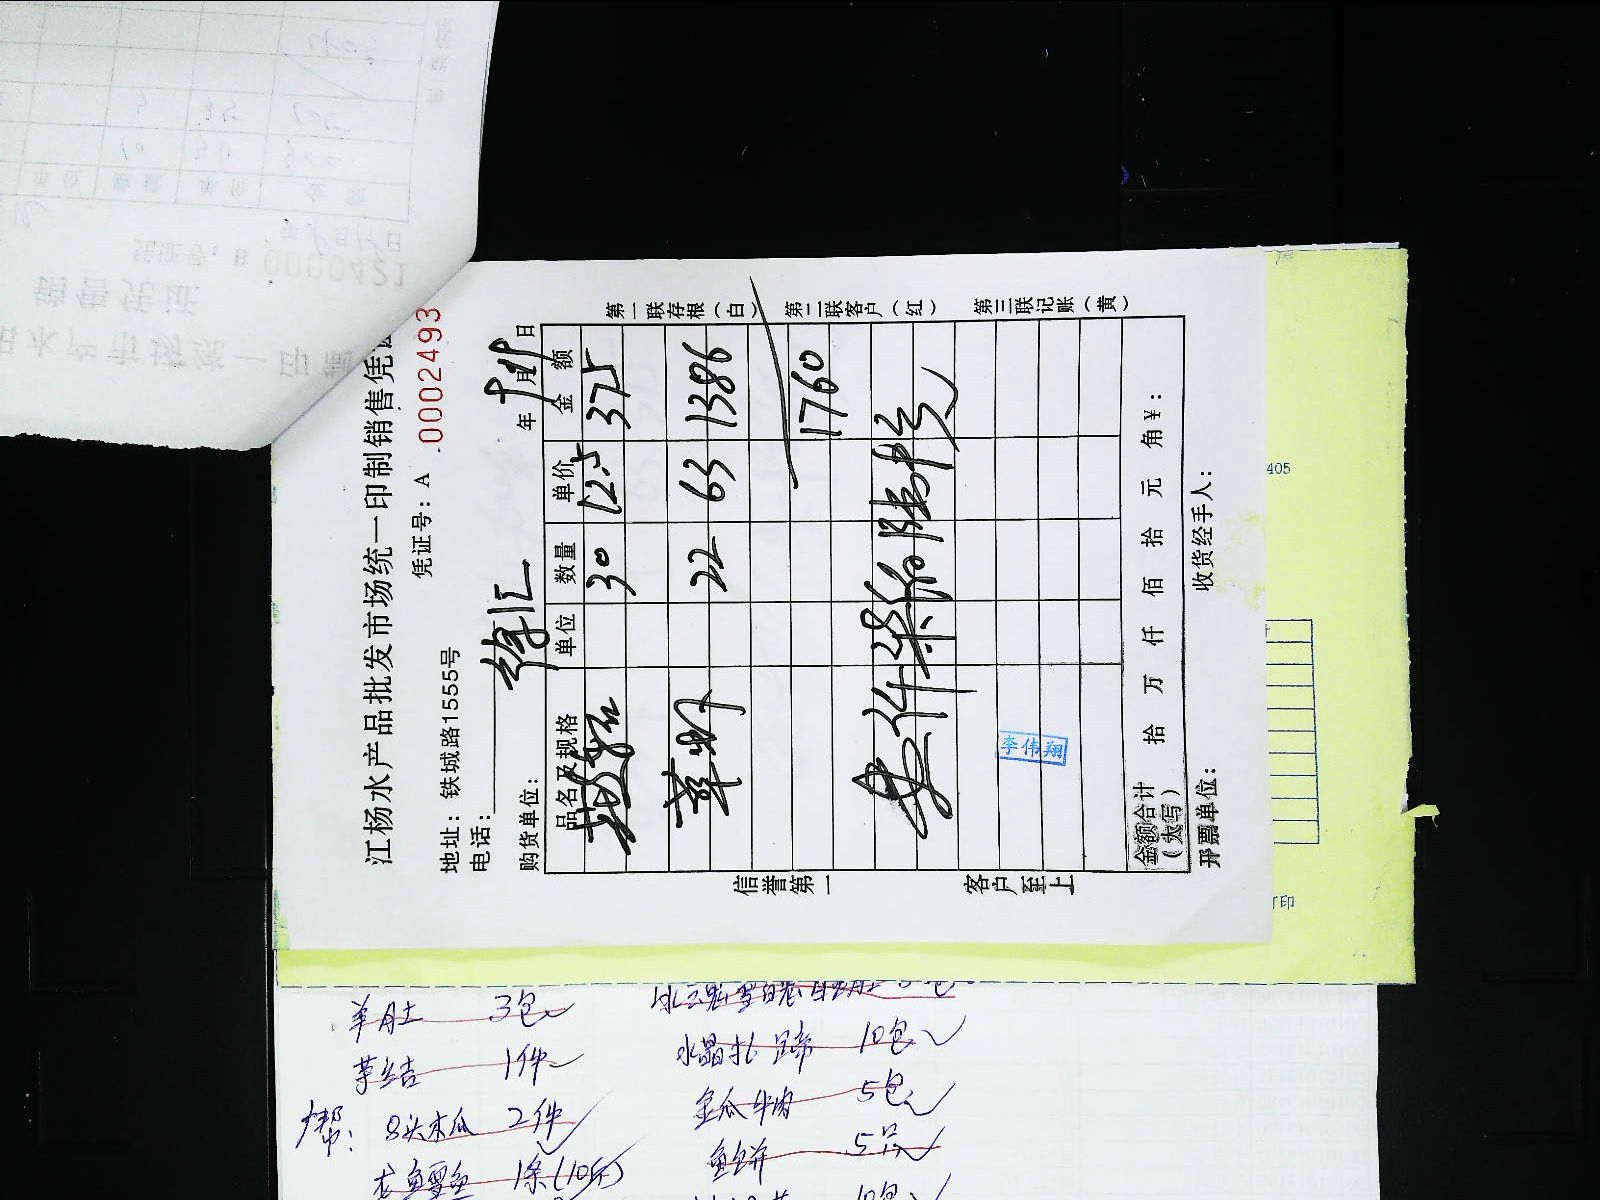 江杨水产品批发市场统一印制销售凭
凭证号：A 0002493
地址：铁城路1555号
电话：
购货单位： 徐汇 年 9月19日
品名及规格 单位 数量 单价 金额
30 12.5 375
草虾 22 63 1386
1760
壹仟柒佰陆拾
李伟翔
金额合计（大写） 拾 万 仟 佰 拾 元 角 ¥：
开票单位： 收货经手人：
信誉第一 客户至上
第一联存根（白） 第二联客户（红） 第三联记账（黄）
405
打印
羊肚 3包
1件
8头木瓜 2件
1条（10斤）
水晶扎蹄 10包
金瓜牛肉 5包
鱼饼 5只
10包
销售凭证
凭证号：B 0000421
水产市场统一印制